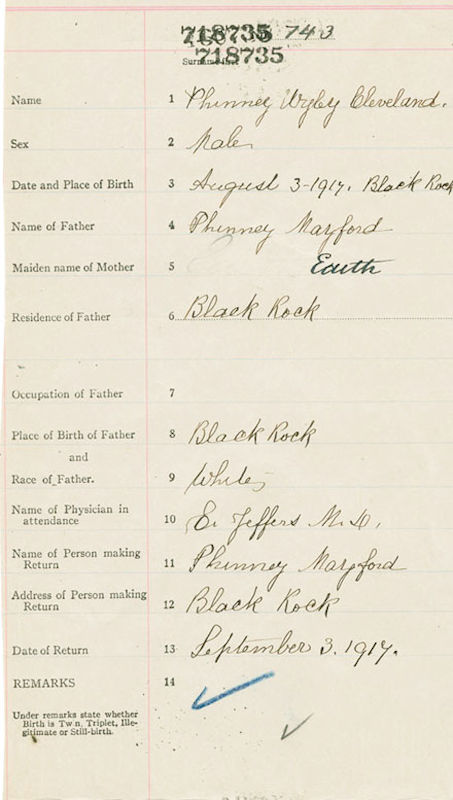 718735 743
718735
Name 1 Phinney Wyly Cleveland.
Sex 2 Male
Date and Place of Birth 3 August 3-1917. Black Rock
Name of Father 4 Phinney Mayford
Maiden name of Mother 5 Edith
Residence of Father 6 Black Rock
Occupation of Father 7
Place of Birth of Father 8 Black Rock
and
Race of Father. 9 White
Name of Physician in
attendance 10 E. Jeffers M.D.
Name of Person making
Return 11 Phinney Mayford
Address of Person making
Return 12 Black Rock
Date of Return 13 September 3. 1917.
REMARKS 14
Under remarks state whether
Birth is Twin, Triplet, Ille-
gitimate or Still-birth.